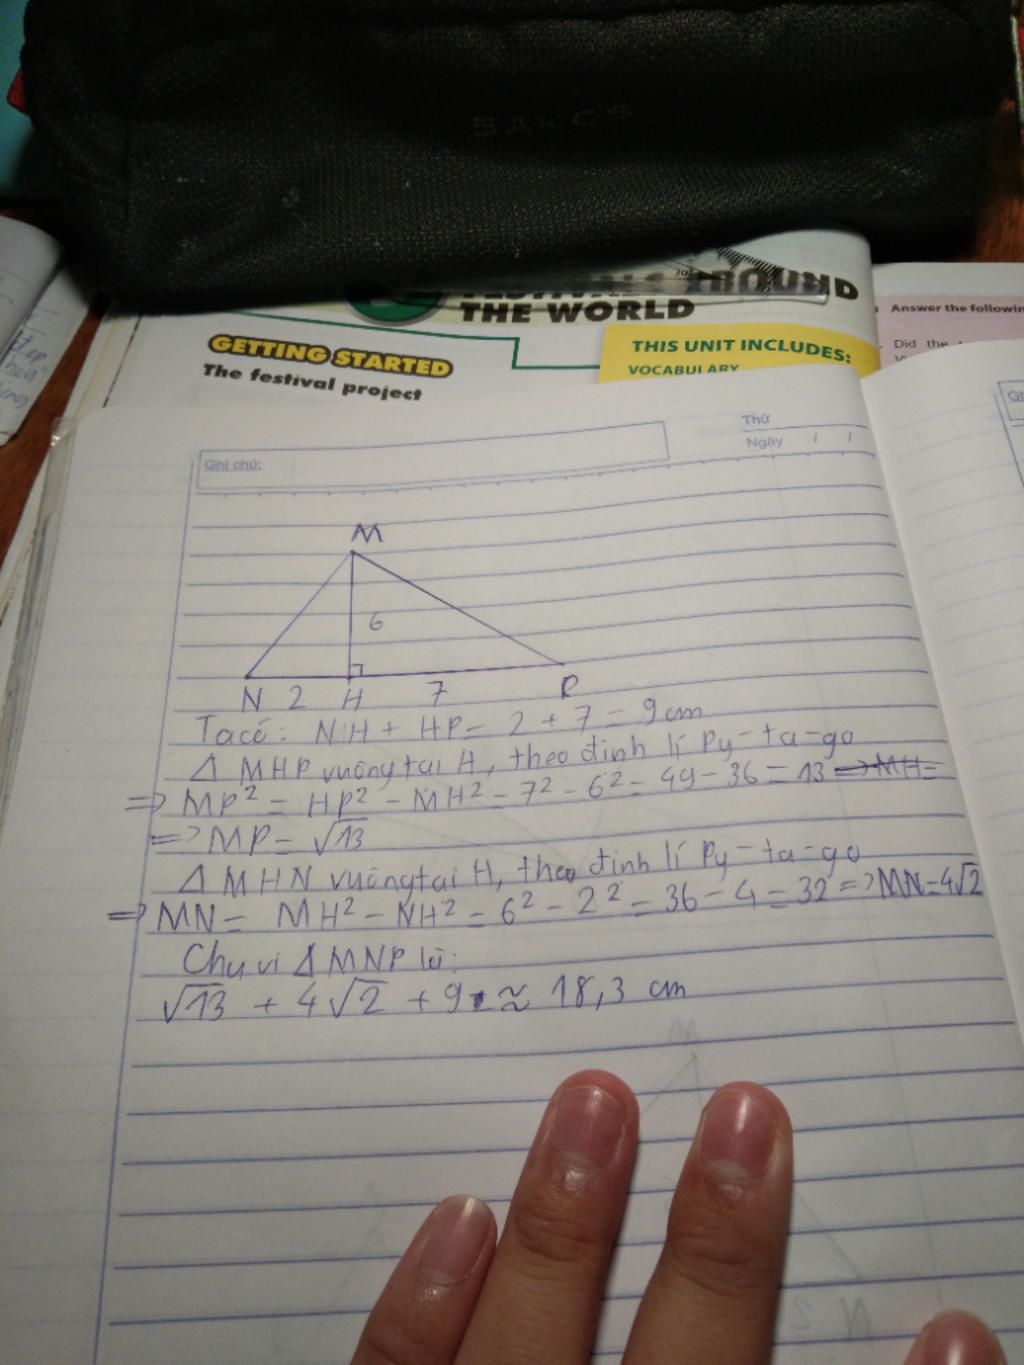 SAKOS
30
THE WORLD
GETTING STARTED
The festival project
THIS UNIT INCLUDES:
VOCABULARY
Answer the following
Did the
Thứ
Ngày / /
Ghi chú:
M
6
N 2 H 7 P
Ta có: NH + HP = 2 + 7 = 9 cm
Δ MHP vuông tại H, theo định lí Py-ta-go
=> MP² = HP² - MH² = 7² - 6² = 49 - 36 = 13 => MH =
=> MP = √13
Δ MHN vuông tại H, theo định lí Py-ta-go
=> MN = MH² - NH² = 6² - 2² = 36 - 4 = 32 => MN = 4√2
Chu vi Δ MNP là:
√13 + 4√2 + 9 ≈ 18,3 cm